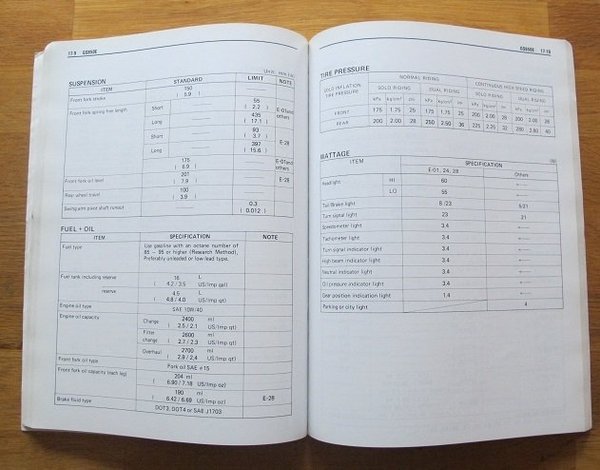 17-9 GS850E
Unit: mm (in)
SUSPENSION
ITEM STANDARD LIMIT NOTE
Front fork stroke 150 ( 5.9 )
Front fork spring free length Short 55 ( 2.2 ) E-01and others
Long 435 ( 17.1 )
Short 93 ( 3.7 ) E-28
Long 397 ( 15.6 )
Front fork oil level 175 ( 6.9 ) E-01and others
201 ( 7.9 ) E-28
Rear wheel travel 100 ( 3.9 )
Swing arm pivot shaft runout 0.3 ( 0.012 )
FUEL + OIL
ITEM SPECIFICATION NOTE
Fuel type Use gasoline with an octane number of
85 – 95 or higher (Research Method).
Preferably unleaded or low-lead type.
Fuel tank including reserve 16 L
( 4.2 / 3.5 US/Imp gal)
reserve 4.5 L
( 4.8 / 4.0 US/Imp qt)
Engine oil type SAE 10W/40
Engine oil capacity Change 2400 ml
( 2.5 / 2.1 US/Imp qt)
Filter change 2600 ml
( 2.7 / 2.3 US/Imp qt)
Overhaul 2700 ml
( 2.9 / 2.4 US/Imp qt)
Front fork oil type Fork oil SAE #15
Front fork oil capacity (each leg) 204 ml
( 6.90 / 7.18 US/Imp oz)
190 ml E-28
( 6.42 / 6.69 US/Imp oz)
Brake fluid type DOT3, DOT4 or SAE J1703
TIRE PRESSURE
COLD INFLATION TIRE PRESSURE NORMAL RIDING CONTINUOUS HIGH SPEED RIDING
SOLO RIDING DUAL RIDING SOLO RIDING DUAL RIDING
kPa kg/cm² psi kPa kg/cm² psi kPa kg/cm² psi kPa kg/cm² psi
FRONT 175 1.75 25 175 1.75 25 200 2.00 28 200 2.00 28
REAR 200 2.00 28 250 2.50 36 225 2.25 32 280 2.80 40
WATTAGE
ITEM SPECIFICATION
E-01, 24, 28 Others
Headlight HI 60 ←
LO 55 ←
Tail/Brake light 8/23 5/21
Turn signal light 23 21
Speedometer light 3.4 ←
Tachometer light 3.4 ←
Turn signal indicator light 3.4 ←
High beam indicator light 3.4 ←
Neutral indicator light 3.4 ←
Oil pressure indicator light 3.4 ←
Gear position indication light 1.4 ←
Parking or city light 4